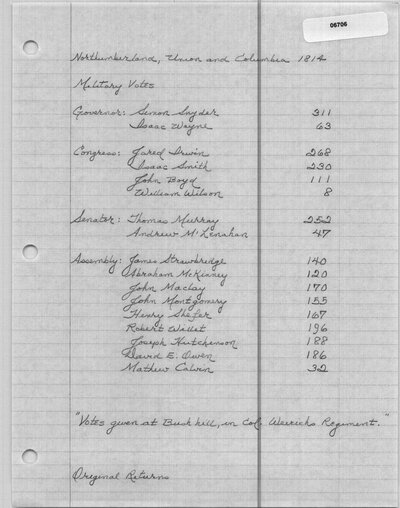 06706
Northumberland, Union and Columbia 1814
Military Votes
Governor: Simon Snyder 311
Isaac Wayne 63
Congress: Jared Irwin 268
Isaac Smith 230
John Boyd 111
William Wilson 8
Senator: Thomas Murray 252
Andrew McLenahan 47
Assembly: James Strawbridge 140
Abraham McKinney 120
John Maclay 170
John Montgomery 155
Henry Shefer 167
Robert Wallet 196
Joseph Hutchenson 188
David E. Owen 186
Mathew Calvin 32
"Votes given at Bush hill, in Col. Weirichs Regiment."
Original Returns